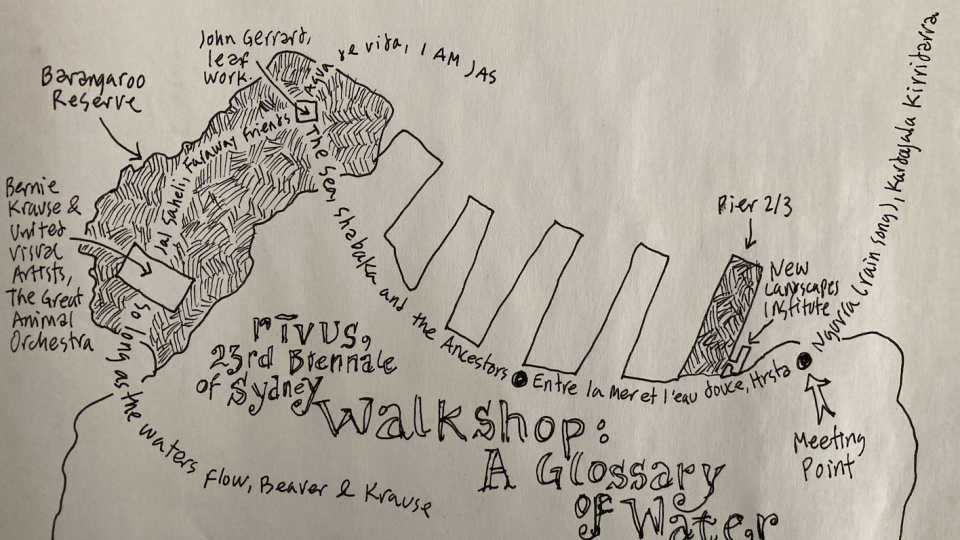 John Gerrard,
leaf
work.
Aqua te vita, I AM JAS
Barangaroo
Reserve
Jal Saheli, Faraway Friends
Bernie
Krause &
United
Visual
Artists,
The Great
Animal
Orchestra
The Sea, Shabaka and the Ancestors
Pier 2/3
New
Landscapes
Institute
Ngurra (rain song), Kardajala Kirridarra.
Entre la mer et l'eau douce, Hrsta
Meeting
Point
So long as the waters flow, Beaver & Krause
rīvus,
23rd Biennale
of Sydney
Walkshop:
A Glossary
of Water